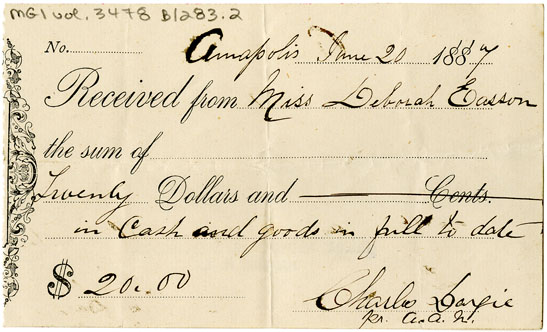 MG1 vol. 3478 B1283.2
No. Annapolis June 20 1887
Received from Miss Deborah Easson
the sum of
Twenty Dollars and Cents.
in Cash and goods in full to date
$ 20.00
Charles
pr. A.A.